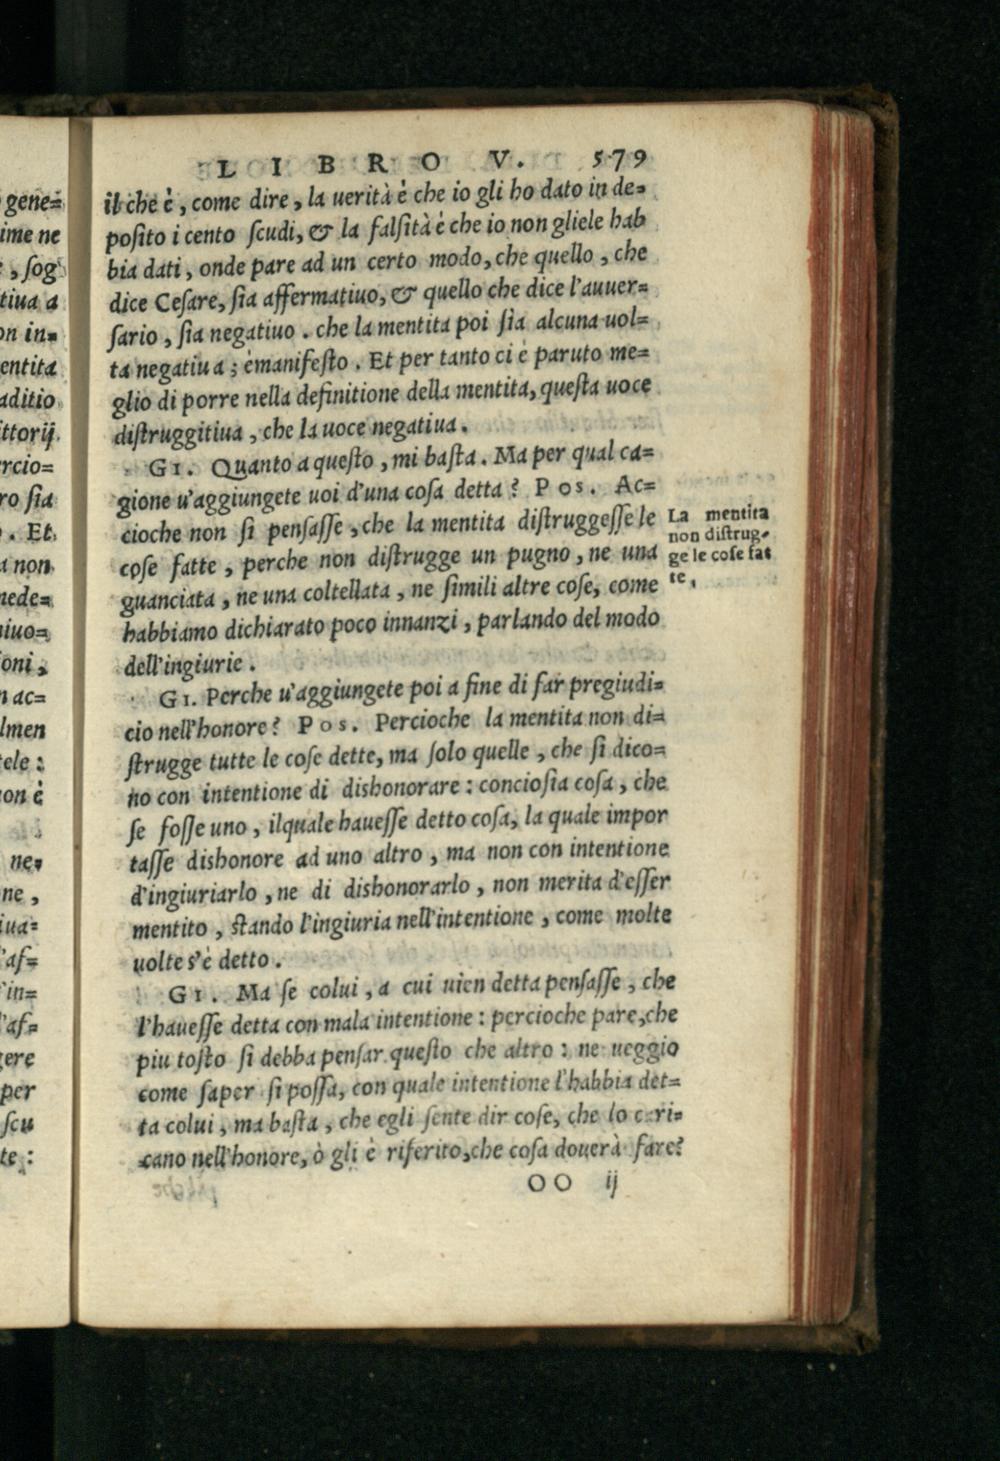 LIBRO V. 579
il che è, come dire, la uerità è che io gli ho dato in de=
posito i cento scudi, & la falsità è che io non gliele hab
bia dati, onde pare ad un certo modo, che quello, che
dice Cesare, sia affermatiuo, & quello che dice l'auuer=
sario, sia negatiuo. che la mentita poi sia alcuna uol=
ta negatiua; è manifesto. Et per tanto ci è paruto me=
glio di porre nella definitione della mentita, questa uoce
distruggitiua, che la uoce negatiua.
GI. Quanto a questo, mi basta. Ma per qual ca=
gione u'aggiungete uoi d'una cosa detta? Pos. Ac=
cioche non si pensasse, che la mentita distruggesse le
cose fatte, perche non distrugge un pugno, ne una
guanciata, ne una coltellata, ne simili altre cose, come
habbiamo dichiarato poco innanzi, parlando del modo
dell'ingiurie.
La mentita
non distrug-
ge le cose fat
te.
GI. Perche u'aggiungete poi a fine di far pregiudi=
cio nell'honore? Pos. Percioche la mentita non di=
strugge tutte le cose dette, ma solo quelle, che si dico=
no con intentione di dishonorare: conciosia cosa, che
se fosse uno, ilquale hauesse detto cosa, la quale impor
tasse dishonore ad uno altro, ma non con intentione
d'ingiuriarlo, ne di dishonorarlo, non merita d'esser
mentito, stando l'ingiuria nell'intentione, come molte
uolte s'è detto.
GI. Ma se colui, a cui uien detta pensasse, che
l'hauesse detta con mala intentione: percioche pare, che
piu tosto si debba pensar questo che altro: ne ueggio
come saper si possa, con quale intentione l'habbia det=
ta colui, ma basta, che egli sente dir cose, che lo cari=
cano nell'honore, ò gli è riferito, che cosa douerà fare?
OO ij
gene=
ime ne
, sog
tiua a
on in=
entita
aditio
ittorij
rcio=
ro sia
. Et
a non
mede=
niuo=
ioni,
n ac=
lmen
tele:
on è
ne=
ne,
iua=
'af=
'in=
l'af=
gere
per
scu
te: